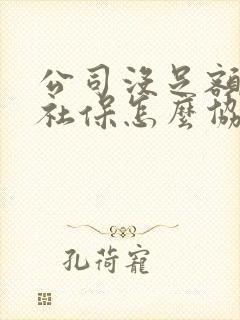 公司沒足額
社保怎麼協
孔荷寵